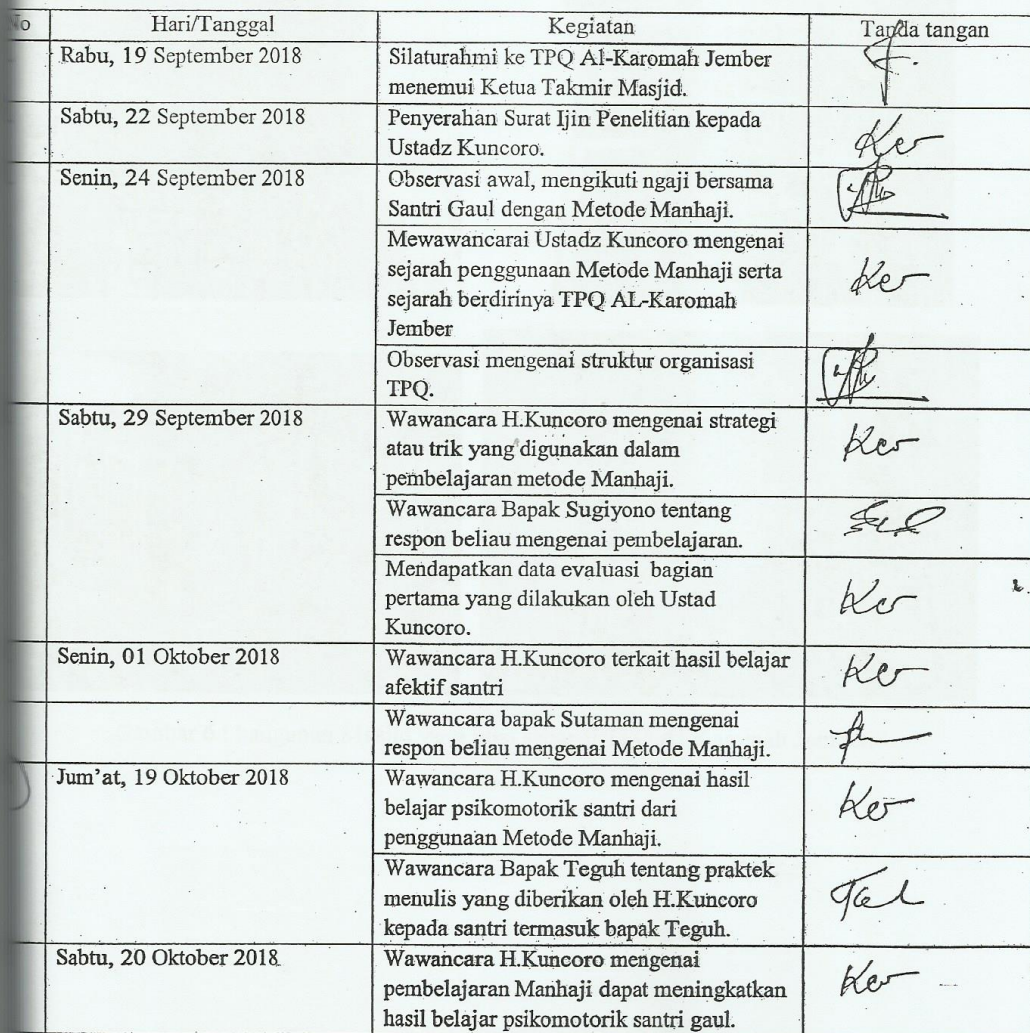 No Hari/Tanggal Kegiatan Tanda tangan
Rabu, 19 September 2018 Silaturahmi ke TPQ Al-Karomah Jember
menemui Ketua Takmir Masjid.
Sabtu, 22 September 2018 Penyerahan Surat Ijin Penelitian kepada
Ustadz Kuncoro.
Senin, 24 September 2018 Observasi awal, mengikuti ngaji bersama
Santri Gaul dengan Metode Manhaji.
Mewawancarai Ustadz Kuncoro mengenai
sejarah penggunaan Metode Manhaji serta
sejarah berdirinya TPQ AL-Karomah
Jember
Observasi mengenai struktur organisasi
TPQ.
Sabtu, 29 September 2018 Wawancara H.Kuncoro mengenai strategi
atau trik yang digunakan dalam
pembelajaran metode Manhaji.
Wawancara Bapak Sugiyono tentang
respon beliau mengenai pembelajaran.
Mendapatkan data evaluasi bagian
pertama yang dilakukan oleh Ustad
Kuncoro.
Senin, 01 Oktober 2018 Wawancara H.Kuncoro terkait hasil belajar
afektif santri
Wawancara bapak Sutaman mengenai
respon beliau mengenai Metode Manhaji.
Jum'at, 19 Oktober 2018 Wawancara H.Kuncoro mengenai hasil
belajar psikomotorik santri dari
penggunaan Metode Manhaji.
Wawancara Bapak Teguh tentang praktek
menulis yang diberikan oleh H.Kuncoro
kepada santri termasuk bapak Teguh.
Sabtu, 20 Oktober 2018 Wawancara H.Kuncoro mengenai
pembelajaran Manhaji dapat meningkatkan
hasil belajar psikomotorik santri gaul.